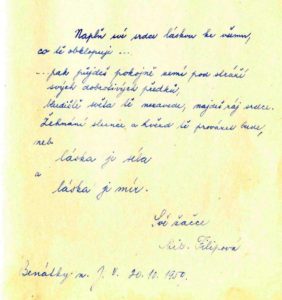 Naplň své srdce láskou ke všemu,
co tě obklopuje ...
.. pak půjdeš pokojně zemí pod stráží
svých dobrotivých předků,
bludiště světa tě nesvede, najdeš ráj srdce.
Žehnání slunce a hvězd tě provázet bude,
neb
láska je síla
a
láska je mír.
Své žačce
Filipova
Benátky n. J. V. 20.10.1950.